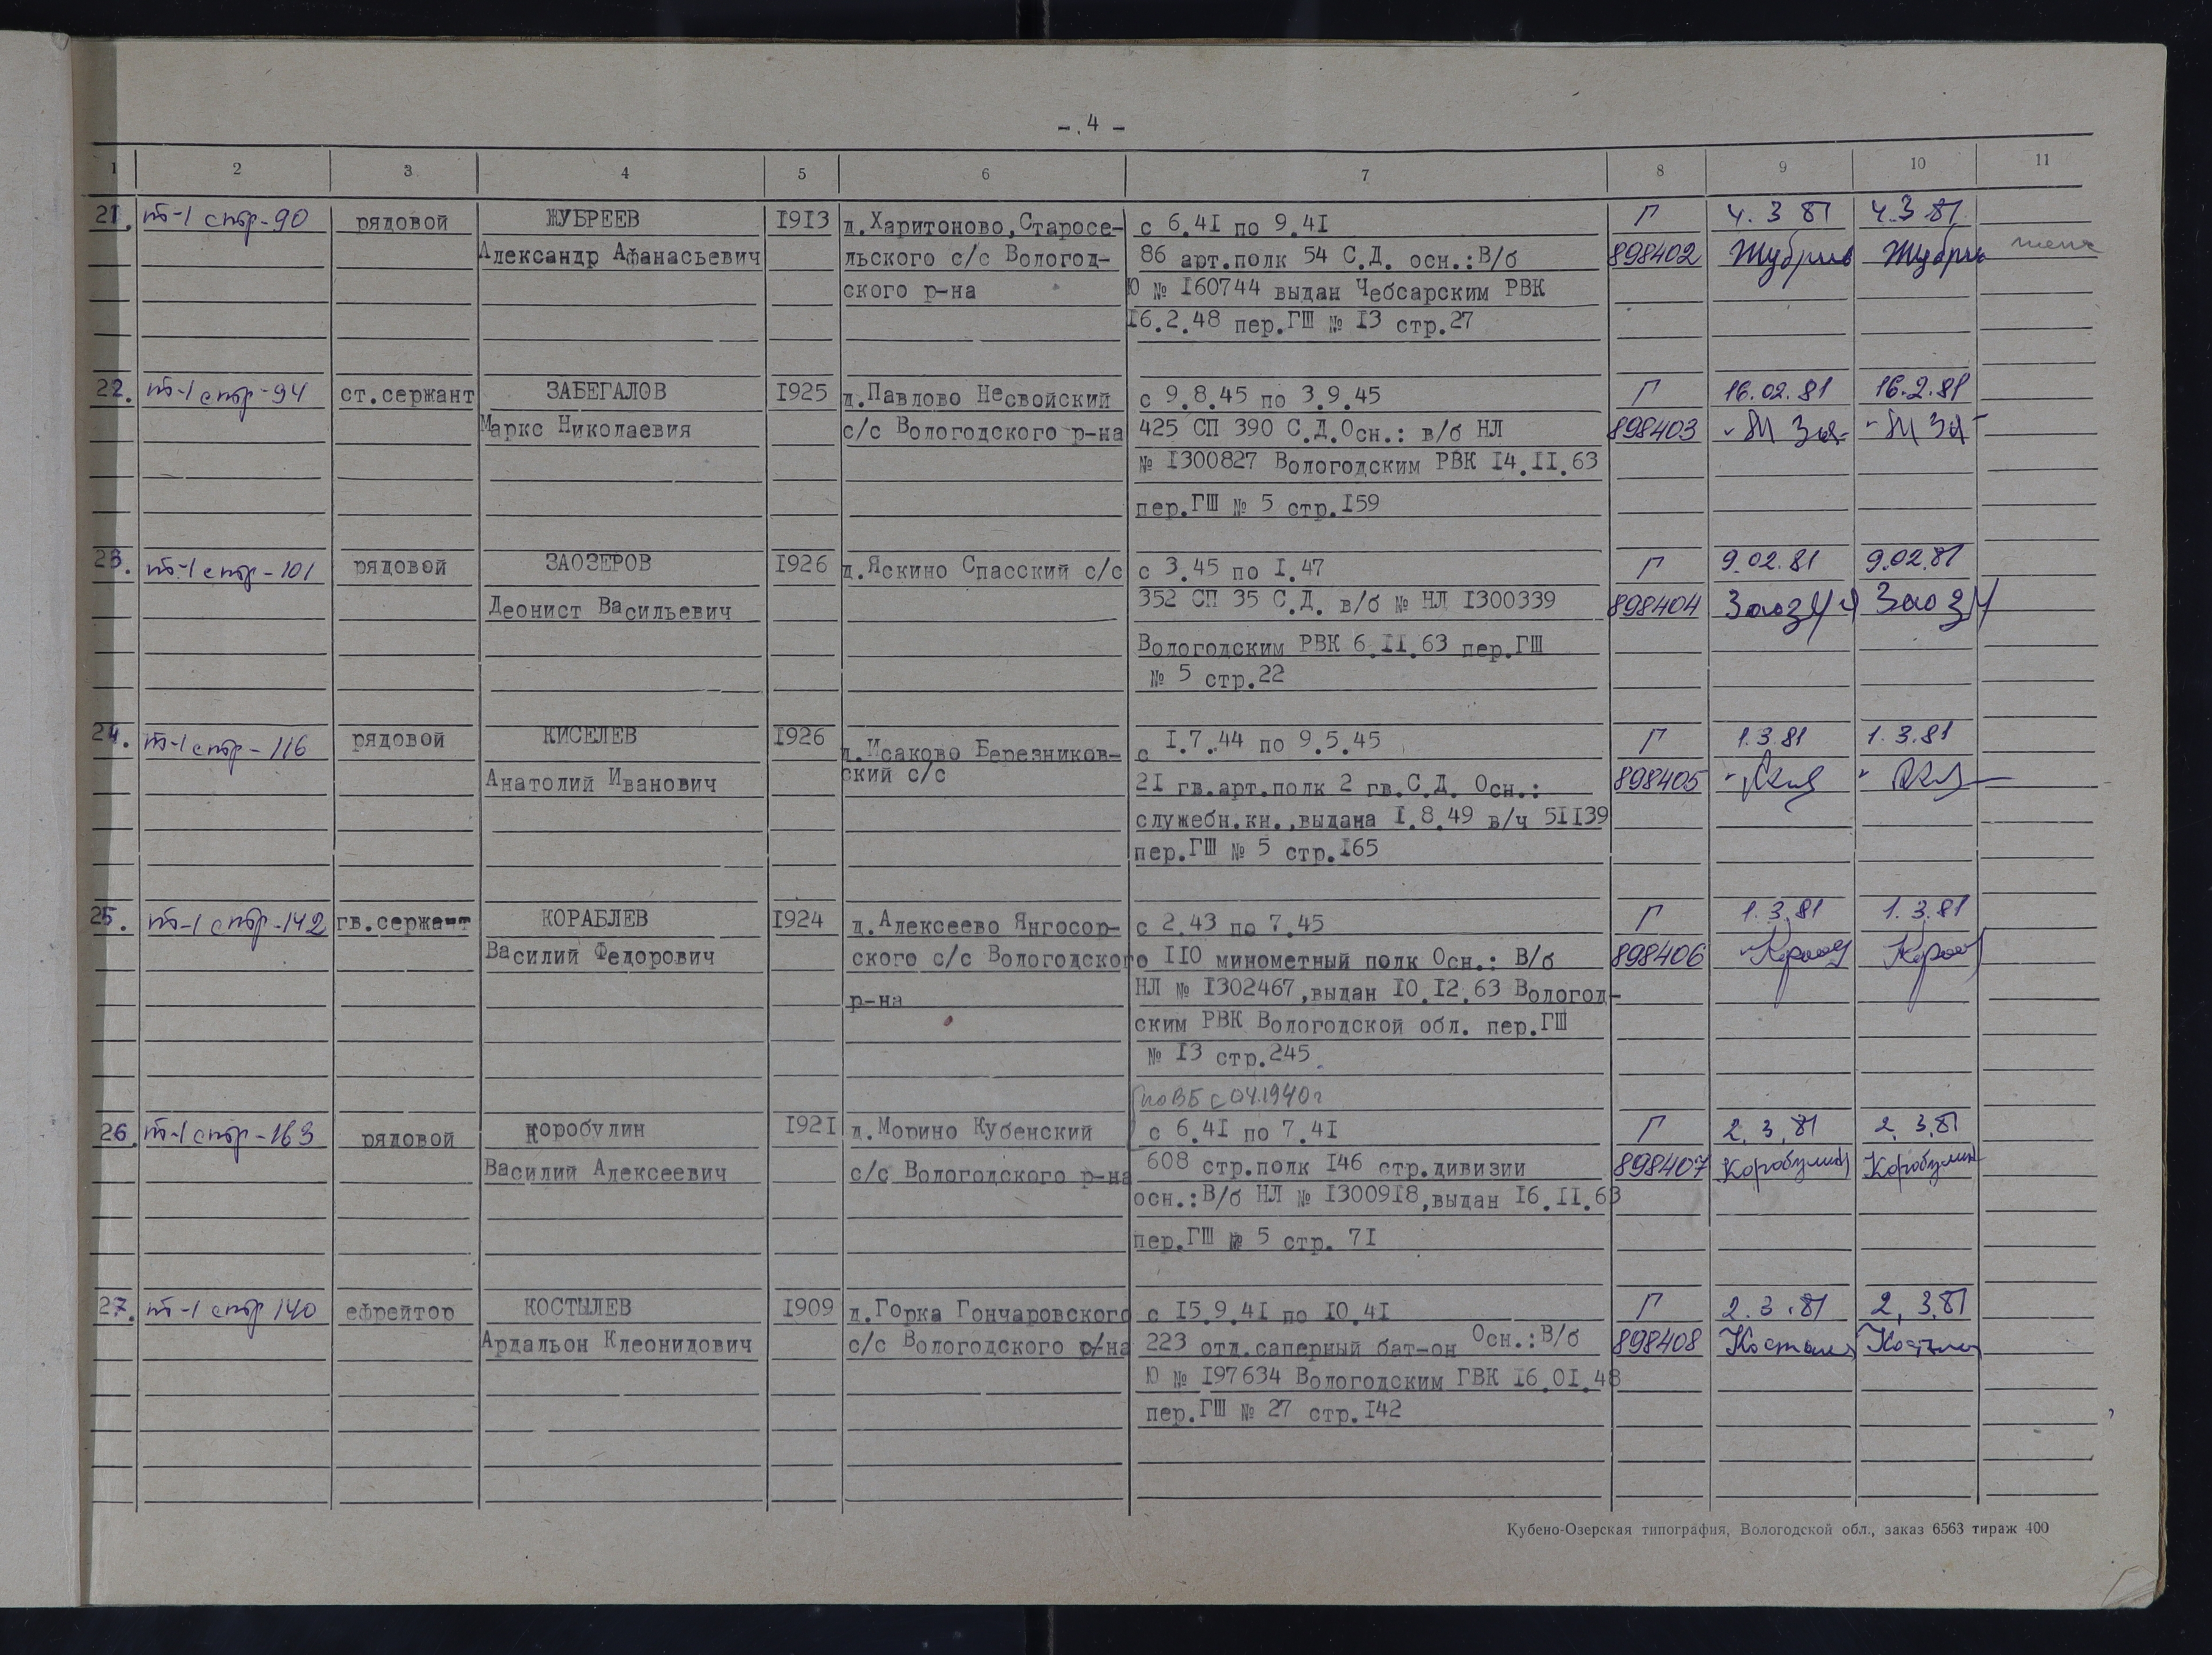 - 4 -
1 2 3 4 5 6 7 8 9 10 11
21. т-1 стр-90 рядовой ЖУБРЕЕВ 1913 д.Харитоново,Старосе- с 6.41 по 9.41 Г 4.3 81 4.3 81
Александр Афанасьевич льского с/с Вологод- 86 арт.полк 54 С.Д. осн.:В/б 898402
ского р-на Ю № 160744 выдан Чебсарским РВК
16.2.48 пер.ГШ № 13 стр.27
22. т-1 стр-94 ст.сержант ЗАБЕГАЛОВ 1925 д.Павлово Несвойский с 9.8.45 по 3.9.45 Г 16.02.81 16.2.81
Маркс Николаевия с/с Вологодского р-на 425 СП 390 С.Д.Осн.: в/б НЛ 898403
№ 1300827 Вологодским РВК 14.11.63
пер.ГШ № 5 стр.159
23. т-1 стр-101 рядовой ЗАОЗЕРОВ 1926 д.Яскино Спасский с/с с 3.45 по 1.47 Г 9.02.81 9.02.81
Леонист Васильевич 352 СП 35 С.Д. в/б № НЛ 1300339 898404
Вологодским РВК 6.11.63 пер.ГШ
№ 5 стр.22
24. т-1 стр-116 рядовой КИСЕЛЕВ 1926 д.Исаково Березников- с 1.7.44 по 9.5.45 Г 1.3.81 1.3.81
Анатолий Иванович ский с/с 21 гв.арт.полк 2 гв.С.Д. Осн.: 898405
служебн.кн.,выдана 1.8.49 в/ч 51139
пер.ГШ № 5 стр.165
25. т-1 стр-142 гв.сержант КОРАБЛЕВ 1924 д.Алексеево Янгосор- с 2.43 по 7.45 Г 1.3.81 1.3.81
Василий Федорович ского с/с Вологодского 110 минометный полк Осн.: В/б 898406
р-на НЛ № 1302467,выдан 10.12.63 Вологод-
ским РВК Вологодской обл. пер.ГШ
№ 13 стр.245
по ВБ с 04.1940г
26. т-1 стр-163 рядовой Коробулин 1921 д.Морино Кубенский с 6.41 по 7.41 Г 2.3.81 2.3.81
Василий Алексеевич с/с Вологодского р-на 608 стр.полк 146 стр.дивизии 898407
осн.:В/б НЛ № 1300918,выдан 16.11.63
пер.ГШ № 5 стр. 71
27. т-1 стр 140 ефрейтор КОСТЫЛЕВ 1909 д.Горка Гончаровского с 15.9.41 по 10.41 Г 2.3.81 2.3.81
Ардальон Клеонидович с/с Вологодского р-на 223 отд.саперный бат-он Осн.:В/б 898408
Ю № 197634 Вологодским ГВК 16.01.48
пер.ГШ № 27 стр.142
Кубено-Озерская типография, Вологодской обл., заказ 6563 тираж 400